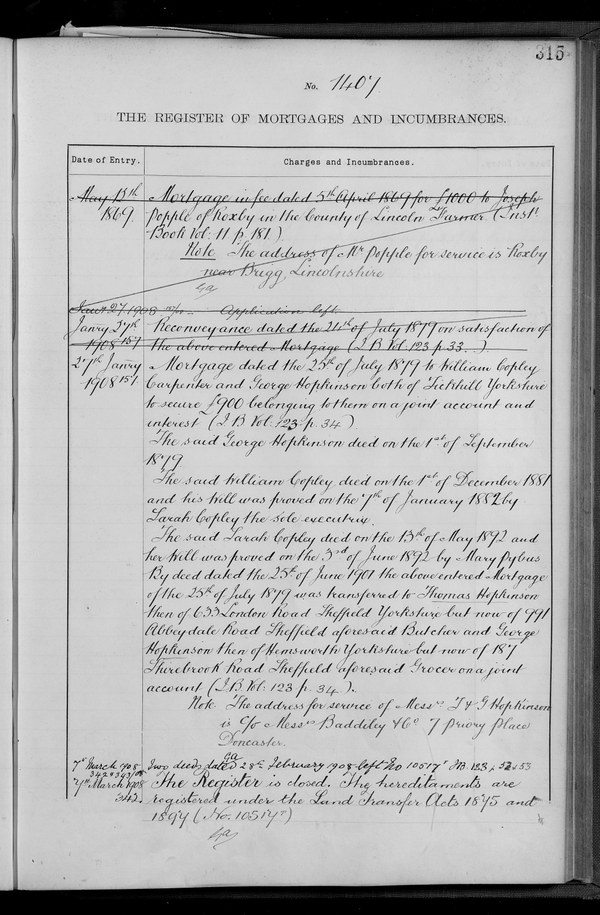 315
No. 1407
THE REGISTER OF MORTGAGES AND INCUMBRANCES.
Date of Entry.
Charges and Incumbrances.
May 13th Mortgage in fee dated 5th April 1869 for £1000 to Joseph
1869. Popple of Roxby in the County of Lincoln Farmer. (Inst.
Book Vol: 11 p. 181.)
Note The address of Mr Popple for service is Roxby
near Brigg, Lincolnshire
Jany 27 1908 Application left
Janry 27th Reconveyance dated the 24th of July 1879 on satisfaction of
1908 151. the above entered Mortgage (I B Vol: 123 p. 33.)
27th Janry Mortgage dated the 25th of July 1879 to William Copley
1908 151. Carpenter and George Hopkinson both of Tickhill Yorkshire
to secure £900 belonging to them on a joint account and
interest (I B Vol: 123 p. 34)
The said George Hopkinson died on the 1st of September
1879
The said William Copley died on the 1st of December 1881
and his Will was proved on the 7th of January 1882 by
Sarah Copley the sole executrix.
The said Sarah Copley died on the 13th of May 1892 and
her Will was proved on the 3rd of June 1892 by Mary Pybus
By deed dated the 25th of June 1901 the above entered Mortgage
of the 25th of July 1879 was transferred to Thomas Hopkinson
then of 633 London Road Sheffield Yorkshire but now of 991
Abbeydale Road Sheffield aforesaid Butcher and George
Hopkinson then of Hemsworth Yorkshire but now of 187
Sturebrook Road Sheffield aforesaid Grocer on a joint
account (I. B. Vol: 123 p. 34.).
Note The address for service of Messrs T & G Hopkinson
is c/o Messrs Baddiley & Co 7 Priory Place
Doncaster.
7th March 908 Two deeds dated 28th February 1908 left No 10517 I B. 123 p 52 & 53
342 & 343/08
7th March 1908 The Register is closed. The hereditaments are
342. registered under the Land Transfer Acts 1875 and
1897 (No. 10517)